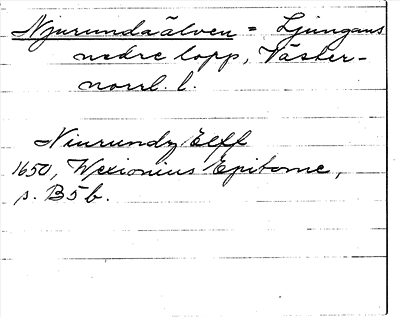 Njurundaälven = Ljungans
nedre lopp, Väster-
norrl. l.
Niurundz Elff
1650, Wexionius Epitome,
s. B5b.